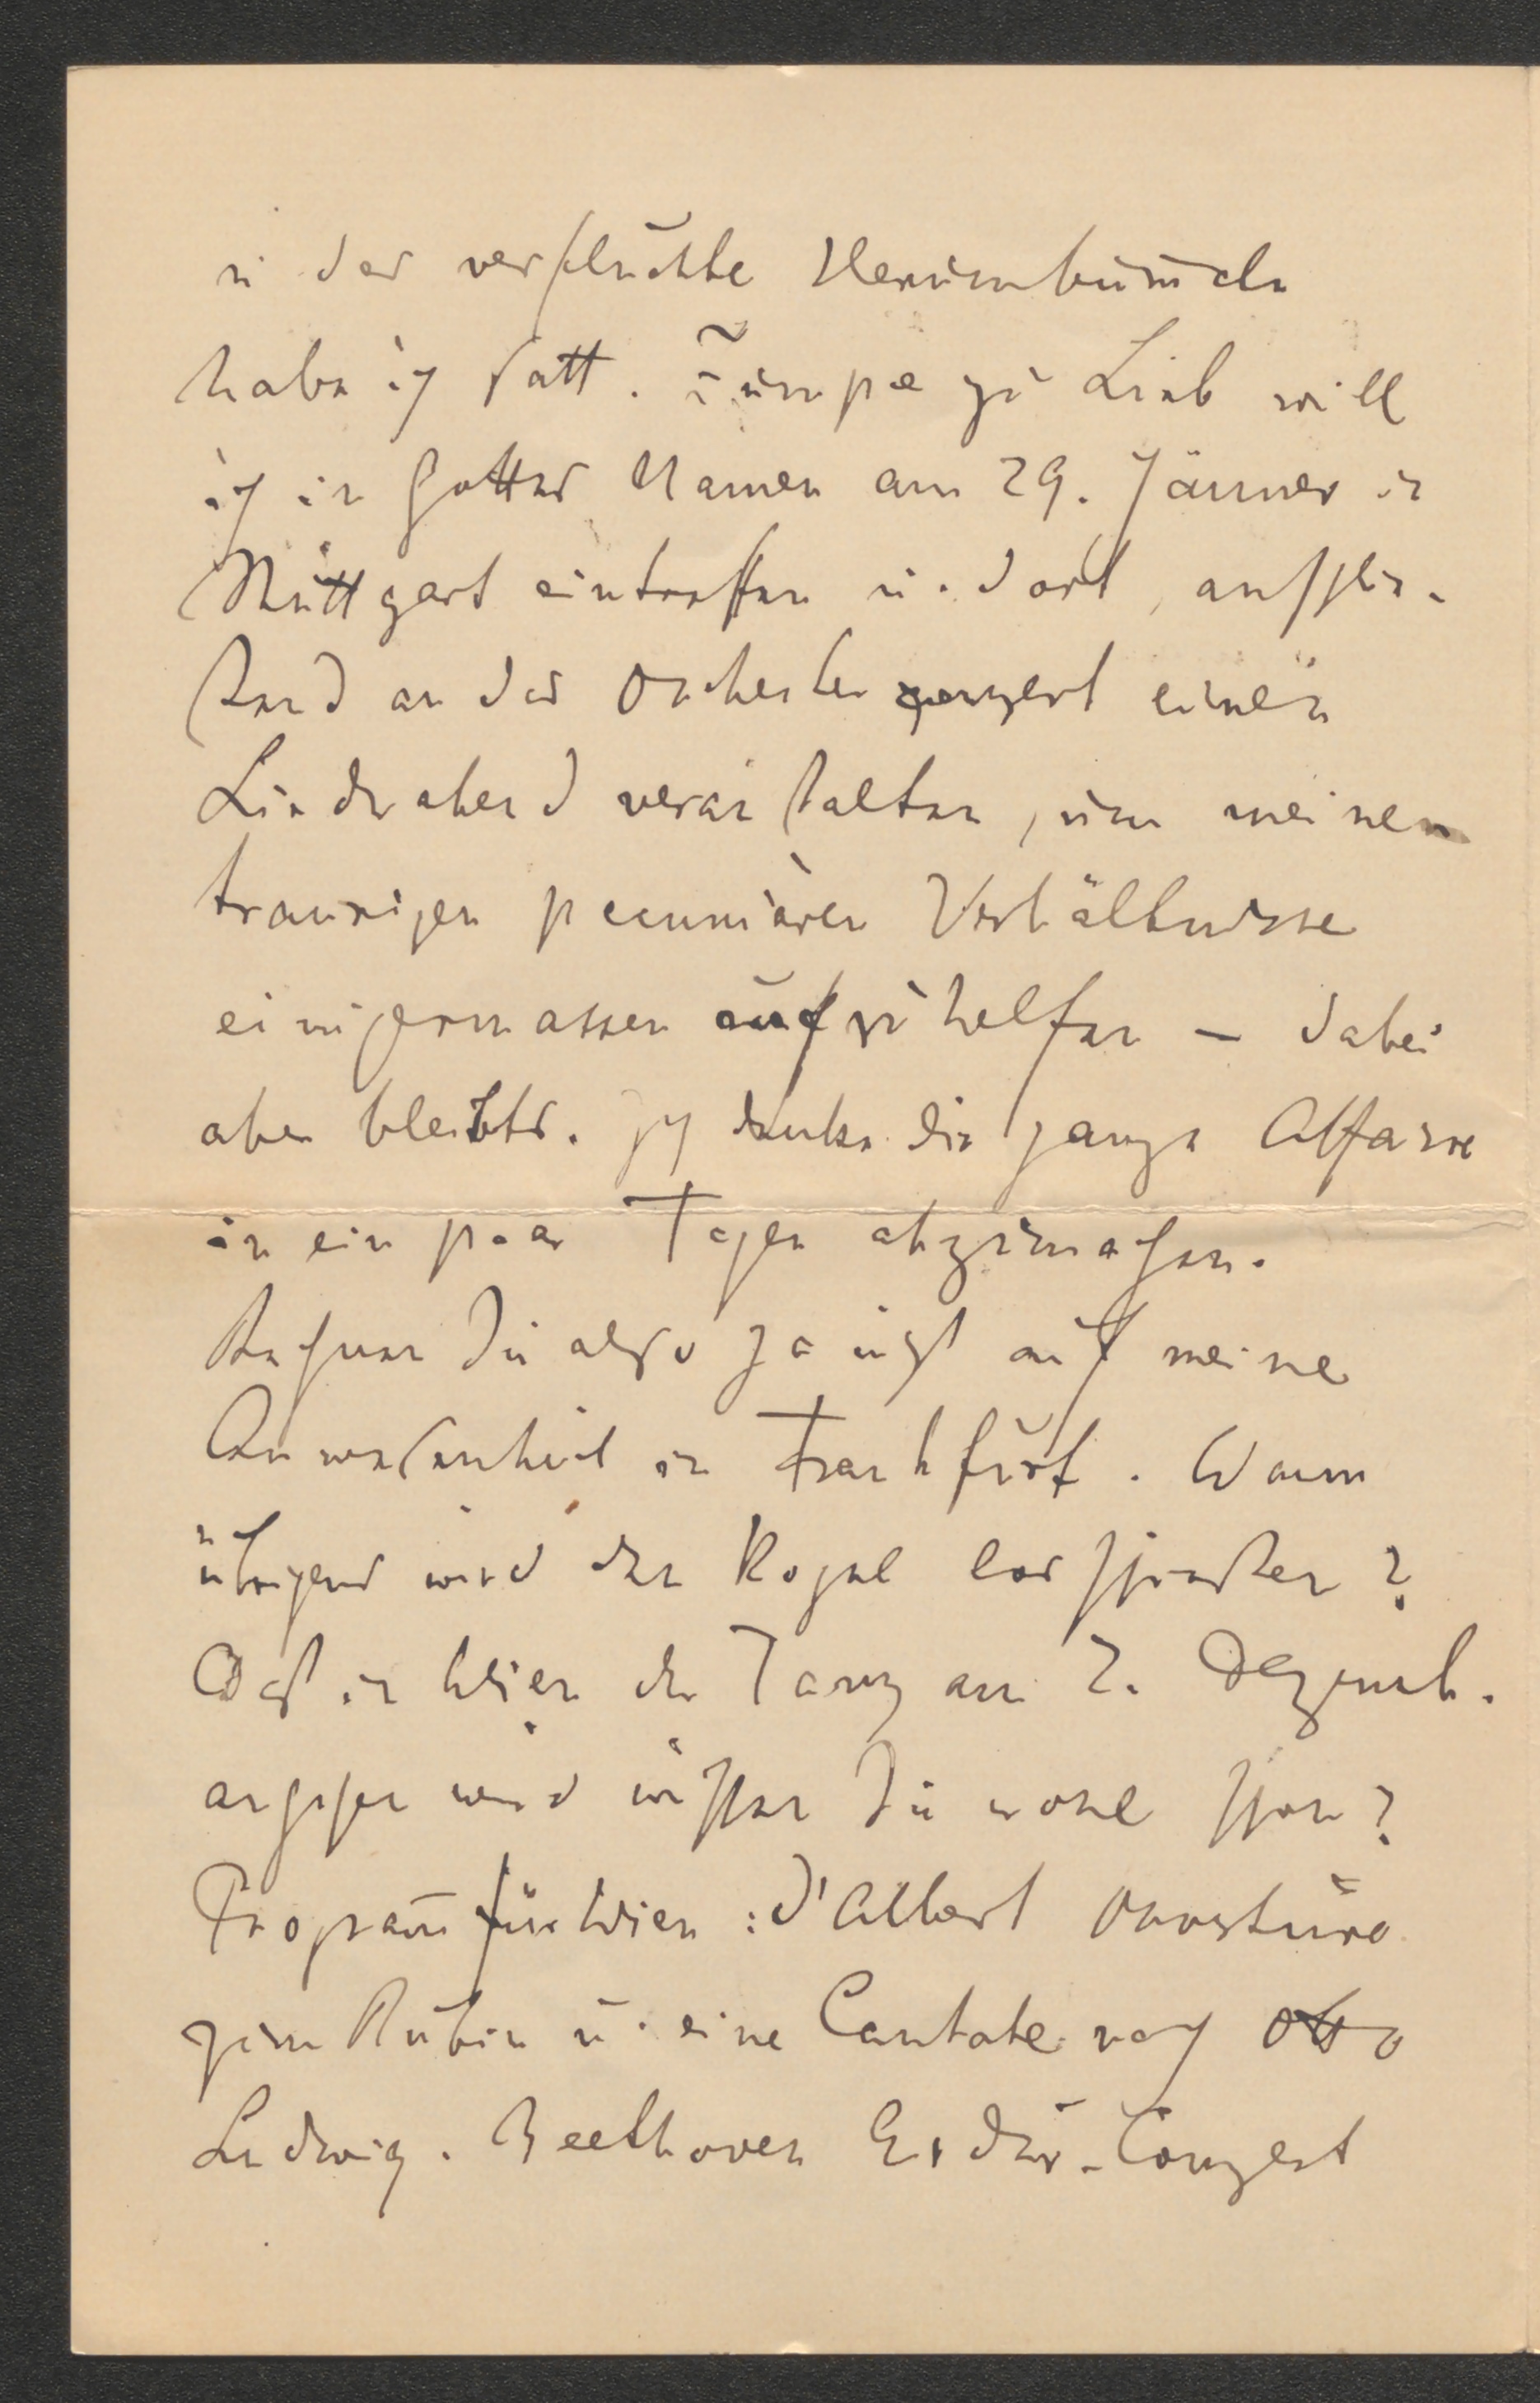 u. das verfluchte Herumbum̅eln
habe ich satt. Zumpe zu Lieb will
ich in Gottes Namen am 29. Jänner in
Stuttgart eintreffen u. dort, anschlie-
ßend an das Orchesterconzert einen
Liederabend veranstalten, um meinen
traurigen pecuniären Verhältnisse
einigermassen aufzuhelfen – dabei
aber bleibts. Ich denke die ganze Affaire
in ein paar Tagen abzumachen.
Rechnen Du also ja nicht auf meine
Anwesenheit in Frankfurt. Wann
übrigens wird der Kogel losschießen?
Daß in Wien der Tanz am 2. Dezemb.
angehen wird wissen Du wohl schon?
Program̅ für Wien: d'Albert Ouverture
zum Rubin u. eine Cantate nach Otto
Ludwig. Beethoven Es dur-Conzert